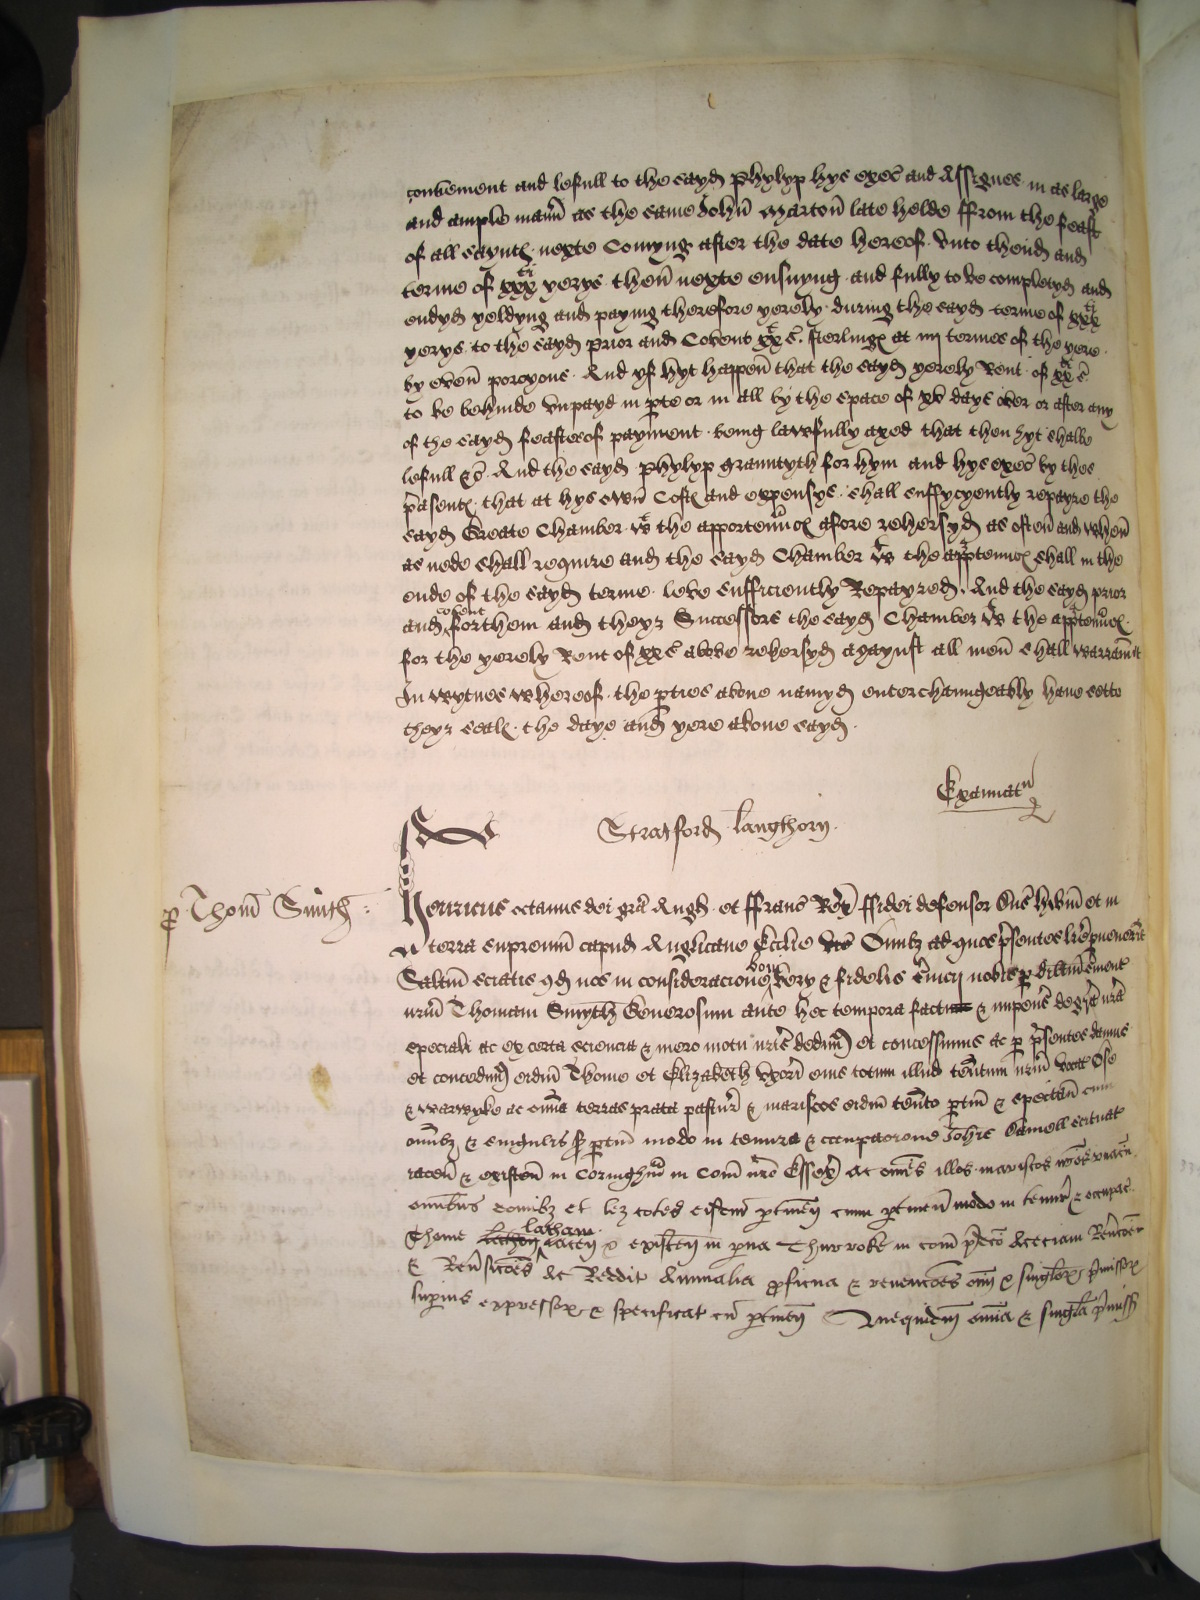 conuement and lefull to the sayd Phylyp hys exec̃ and Assignes in as large
and ample mañ as the same John̄ Marton̄ late helde ffrom the feast
of all sayntꝭ nexte Comyng after the date hereof vnto thend and
terme of xxxᵗⁱ yerys then̄ nexte ensuyng and fully to be completyd and
endyd yeldyng and paying therefore yerely during the sayd terme of xxxᵗⁱ
yerys to the sayd prior and Covent xxᵗⁱ s̃ sterlingꝭ at iiij termes of the yere
by even̄ porcyons And yf hyt happen̄ that the sayd yerely Rent of xxᵗⁱ s̃
to be behinde vnpayd in ꝑte or in all by the space of xv days over or after any
of the sayd feastes of payment being lawfully axed that then hyt shalbe
lefull &c̃ And the sayd Phylyp grauntyth for hym and hys exec̃ by thes
p̃sentꝭ that at hys own̄ Costꝭ and expensys shall suffycyently repayre the
sayd Greate Chamber wᵗ the apportenũcꝭ afore rehersyd as often̄ and when̄
as nede shall require and the sayd Chamber wᵗ the apꝑtenũcꝭ shall in the
ende of the sayd terme leve sufficiently Repayred And the sayd prior
and covent for them and theyr Successors the sayd Chamber wᵗ the apꝑtenũcꝭ
for the yerely Rent of xx s̃ above rehersyd agaynst all men̄ shall warrãnt
In wytnes whereof the ꝑties above namyd enterchaungeably have sette
theyr sealꝭ the daye and yere above sayd
Examiat̃
Stratford langthorn
ꝑ Thom̃ Smith
Henricus octauus dei gr̃a Angl̃ et ffranc̃ Rex ffidei defensor Dñs hib̃nie et in
terra supremũ capud Anglicane Ecclie Om̃ibꝫ ad quos p̃sentes lr̃e ꝑuenerĩt
Salt̃m sciatis qd̃ nos in consideracione boni veri & fidelis s̃uicij nobis ꝑ dilc̃m s̃uient̃
nr̃m Thomam Smyth Generosum ante hec tempora fact & impens̃ de gr̃a nr̃a
speciali ac ex certa sciencia & mero motu nr̃is dedim⁹ et concessimus ac ꝑ p̃sentes damus
et concedim⁹ eidm̃ Thome et Elizabeth vxori eius totum illud teñtum nr̃m
& warwyke ac om̃ia terras prata pastur̃ & mariscos eidm̃ teñto ꝑtin̄ & spectañ cum
om̃ibꝫ & singulis ꝑtin̄ modo in tenura & occupacione Joh̃is Samell scituat̃
iacen̄ & existen̄ in Coringhm̃ in Com̃ nr̃o Essex̃ Ac om̃es illos mariscos
omnibus domibꝫ et leꝫ cotes eisdem ꝑtineñ cum ꝑtineñ modo in tenur̃ & occupac̃
Thome latham iaceñ & existeñ in ꝑua Thurroke in com̃ p̃dc̃o Aceciam Reũcõem
& Reũsiões Ac Reddit̃ Annualia ꝓficua & reuencões om̃i & singlorꝫ p̃missorꝫ
suꝑius expressorꝫ & specificat̃ cũ ꝑtineñ Que quidem om̃ia & singla p̃miss̃